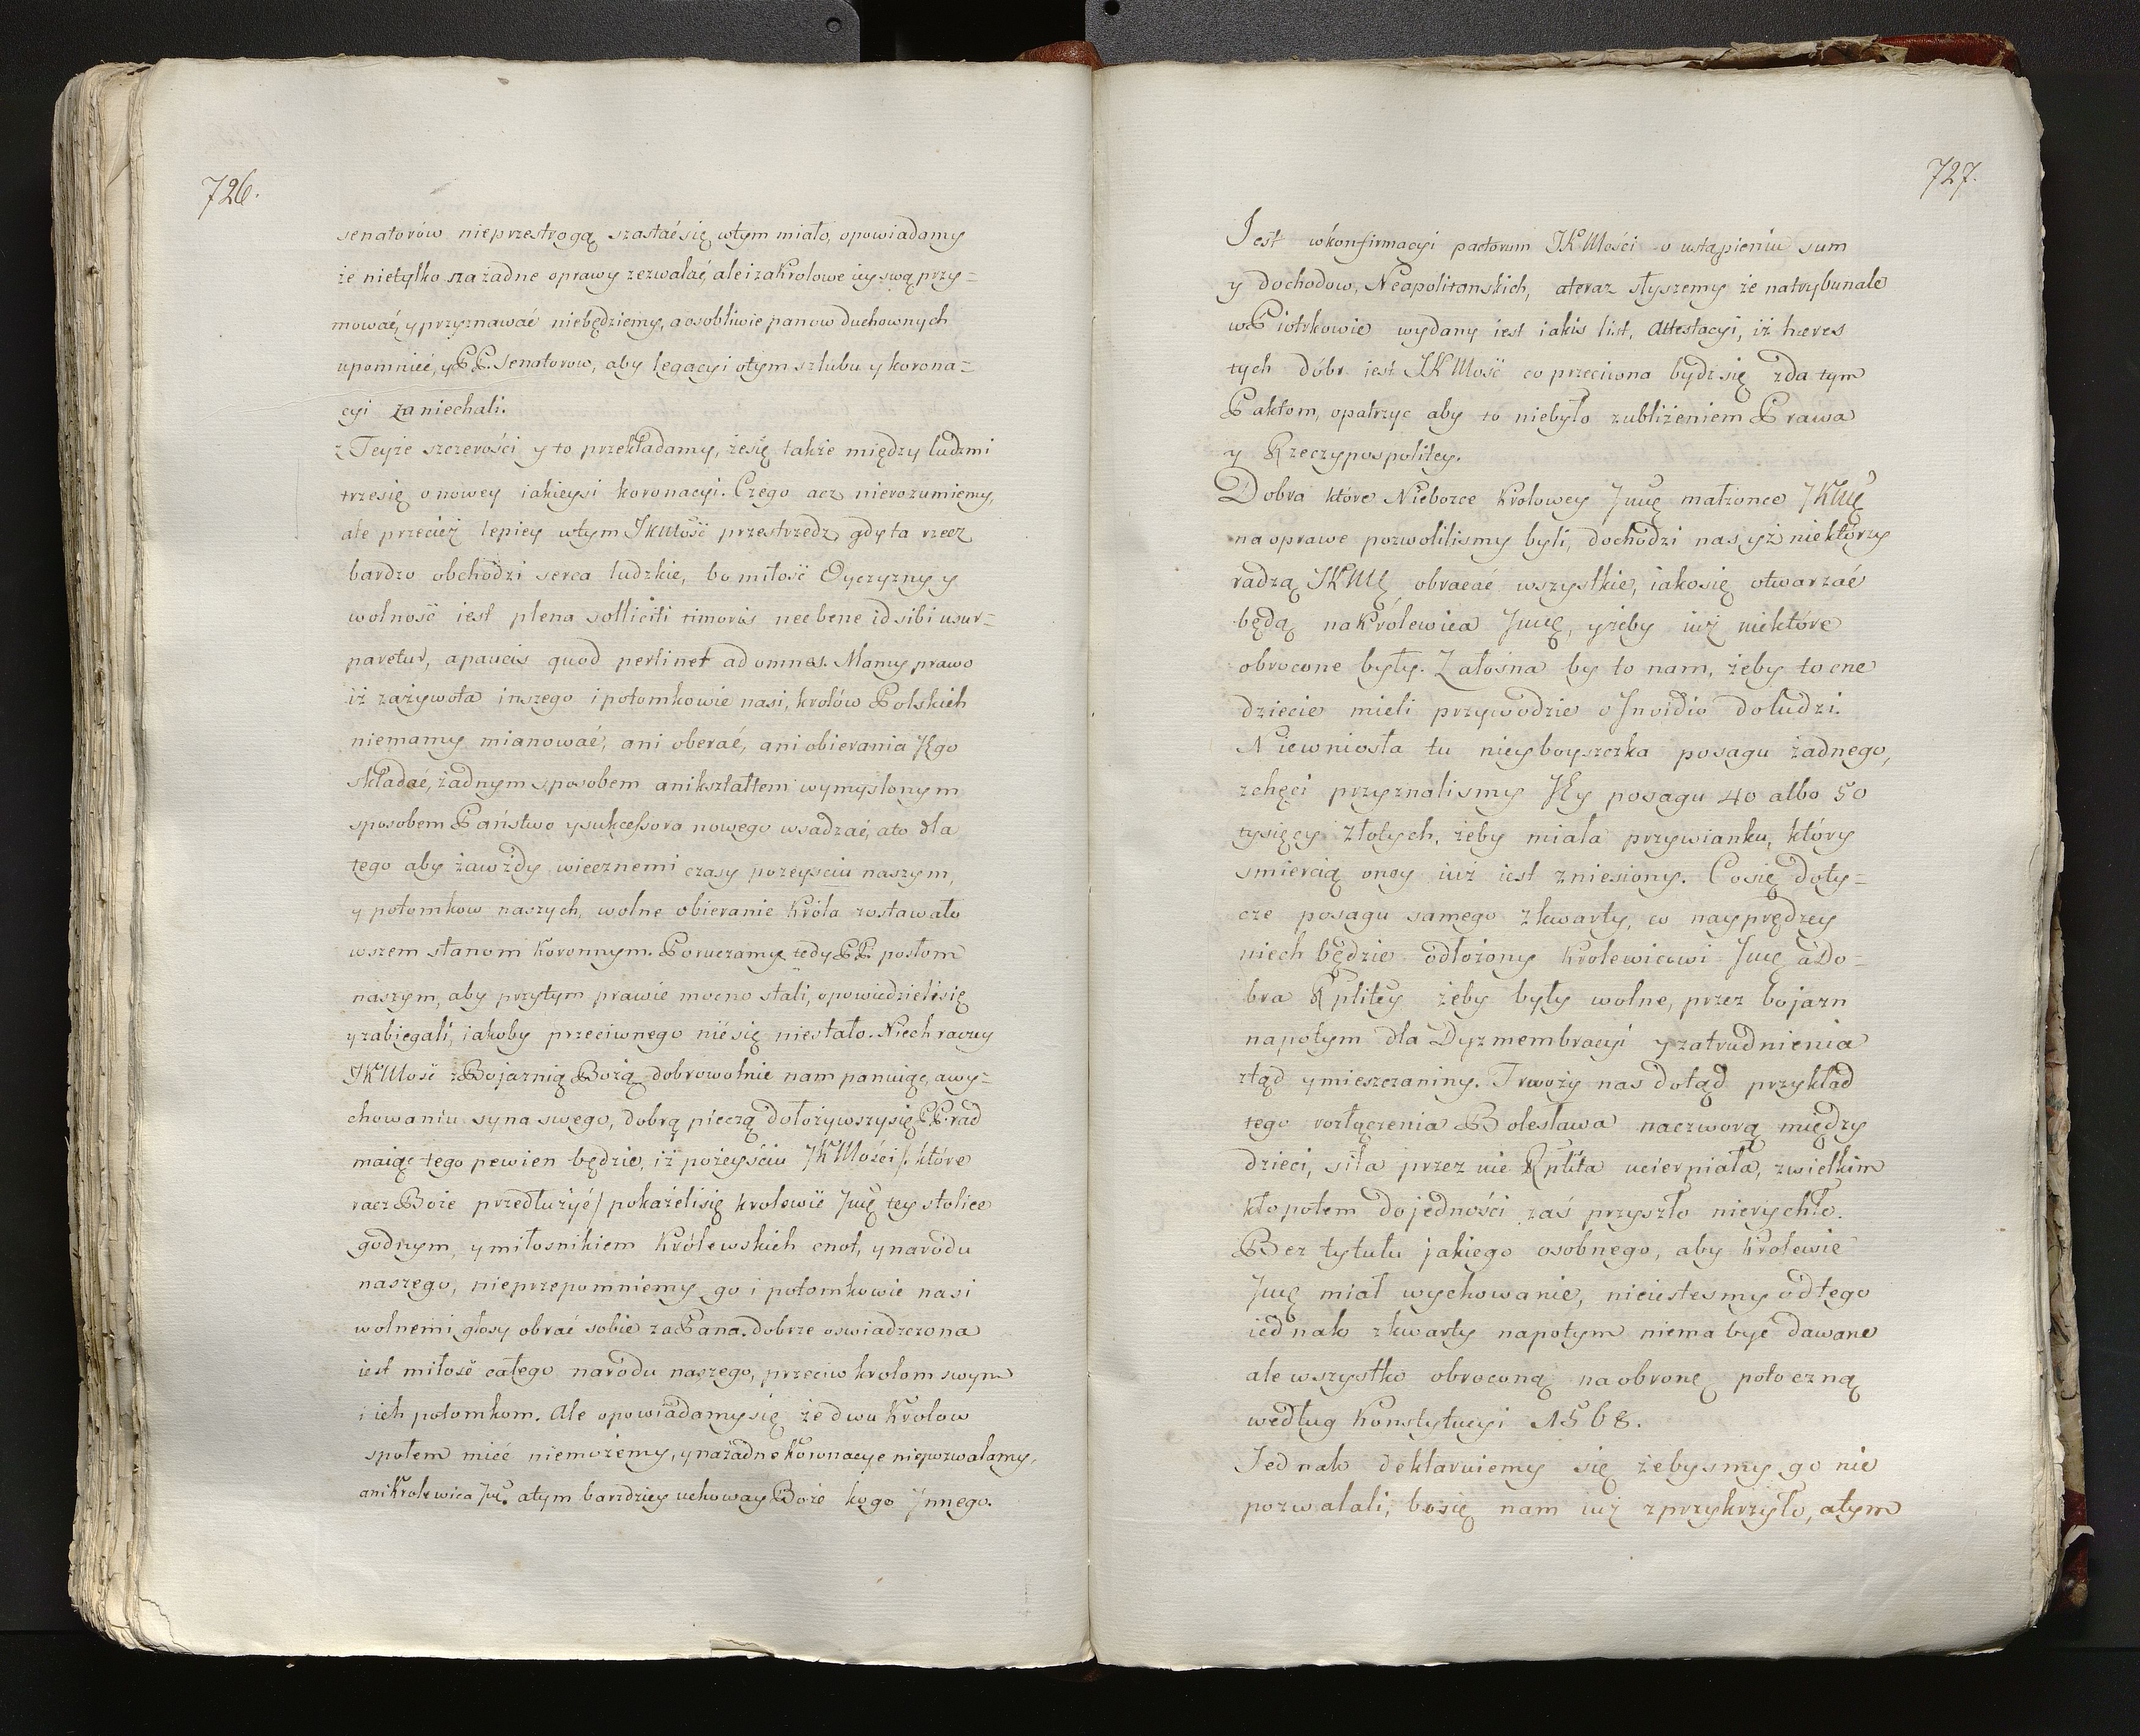 726.
senatorów nieprzestrogą szastać się wtym miało, opowiadamy
że nietylko sza żadne oprawy zezwalać, ale i zaKrolowe iey swą przy=
mować, y przyznawać niebędziemy, a osobliwie panow duchownych
upomnieć, y PP. Senatorow, aby legacyi otym szlubu y korona=
cyi zaniechali.
z Teyże szczerości y to przekładamy, że się także między ludzmi
trzesię o nowey iakieysi koronacyi. Czego acz nierozumiemy,
ale przecież lepiey wtym JKMość przestrzedz, gdy ta rzecz
bardzo obchodzi serca ludzkie, bo miłość Oyczyzny y
wolność iest plena solliciti timoris nec bene id sibi usur=
paretur, apaucis quod pertinet ad omnes. Mamy prawo
iż zażywota inszego i potomkowie nasi, krolów Polskich
niemamy mianować, ani oberać, ani obierania Jego
składać, żadnym sposobem anikształtem wymyslonym
sposobem Państwo y sukcessora nowego wsadzać, a to dla
tego aby zawżdy wiecznemi czasy pozeyściu naszym,
y potomkow naszych, wolne obieranie Króla zostawało
wszem stanom Koronnym. Poruczamy tedy PP. posłom
naszym, aby przytym prawie mocno stali, opowiedzieli się
y zabiegali, iakoby przeciwnego nic się niestało. Niech raczy
JKMość z Bojaznią Bożą dobrowolnie nam panuiąc, a wy=
chowaniu syna swego, dobrą pieczą dołożywszy się PP. rad
maiąc tego pewien będzie, iż pożeyściu JKMości /: które
racz Boże przedłużyć / pokażeli się krolewic Jmć tey stolice
godnym, y miłosnikiem Królewskich cnot, y narodu
naszego, nieprzepomniemy go i potomkowie nasi
wolnemi głosy obrać sobie za Pana. dobrze oswiadczona
iest miłość całego narodu naszego, przeciw krolom swym
i ich potomkom. Ale opowiadamy się że dwu Krolow
społem mieć niemożemy, y nażadne Koronacye niepozwalamy,
ani Krolewica Jmć. atym barzdziey uchoway Boże kogo Jnnego.
727.
Jest wkonfirmacyi pactorum JKMości o ustąpieniu sum
y dochodow, Neapolitanskich, ateraz słyszemy że natrybunale
w Piotrkowie wydany iest iakis list, Attestacyi, iż hæres
tych dóbr iest JKMość co przeciwna bydz się zda tym
Paktom, opatrzyc aby to niebyło zubliżeniem Prawa
y Rzeczypospolitey.
Dobra które Nieborce Krolowey Jmć małżonce JKMć
na oprawe pozwolilismy byli, dochodzi nas yż niektórzy
radzą JKMć obracać wszystkie, iakosię otwarzać
będą na Królewica Jmć, y żeby iuż niektóre
obrocone były. Załosna by to nam, żeby to cne
dziecie mieli przywodzic o Jnvidią doludzi.
Niewniosła tu nieyboyszczka posagu żadnego,
zchęci przyznalismy Jey posagu 40 albo 50
tysięcy złotych, żeby miała przywianku, który
smiercią oney iuż iest zniesiony. Co się doty=
cze posagu samego zkwarty, co nayprędzey
niech będzie odłożony Krolewicowi Jmć a Do=
bra Rptitey żeby były wolne, przez bojazn
napotym dla Dyzmembracyi y zatrudnienia
ztąd y mieszczaniny. Trwoży nas dotąd przykład
tego rozłączenia Bolesława naczworą między
dzieci, siła przez nie Rptita ucierpiała, zwielkim
kłopotem dojedności zaś przyszło nierychło.
Bez tytułu jakiego osobnego, aby Krolewic
Jmć miał wychowanie, nieiestesmy odtego
iednak zkwarty napotym niema bydz dawane
ale wszystko obroconą na obronę potoczną
według Konstytucyi 1568.
Jednak deklaruiemy się żebysmy go nie
pozwalali, bo się nam iuż zprzykrzyło, atym